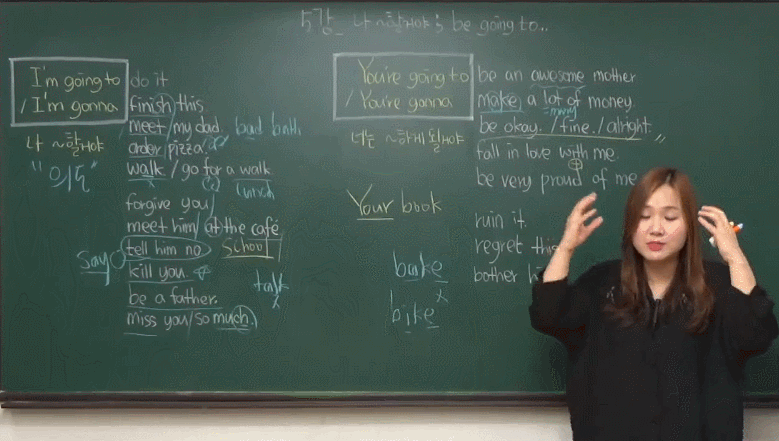 5강 나 ~할거야 ; be going to...
I'm going to
/ I'm gonna
나 ~할거야
"의도"
do it
finish this
meet / my dad. bad bath
order pizza.
walk / go for a walk
lunch
forgive you /
meet him / at the café
tell him no school
say
kill you
talk
x
be a father.
miss you / so much.
You're going to
/ You're gonna
너는 ~하게 될거야
be an awesome mother
make a lot of money.
=many
be okay. / fine. / alright.
fall in love with me.
be very proud of me
Your book
ruin it.
regret this
bother
bake
x
bike